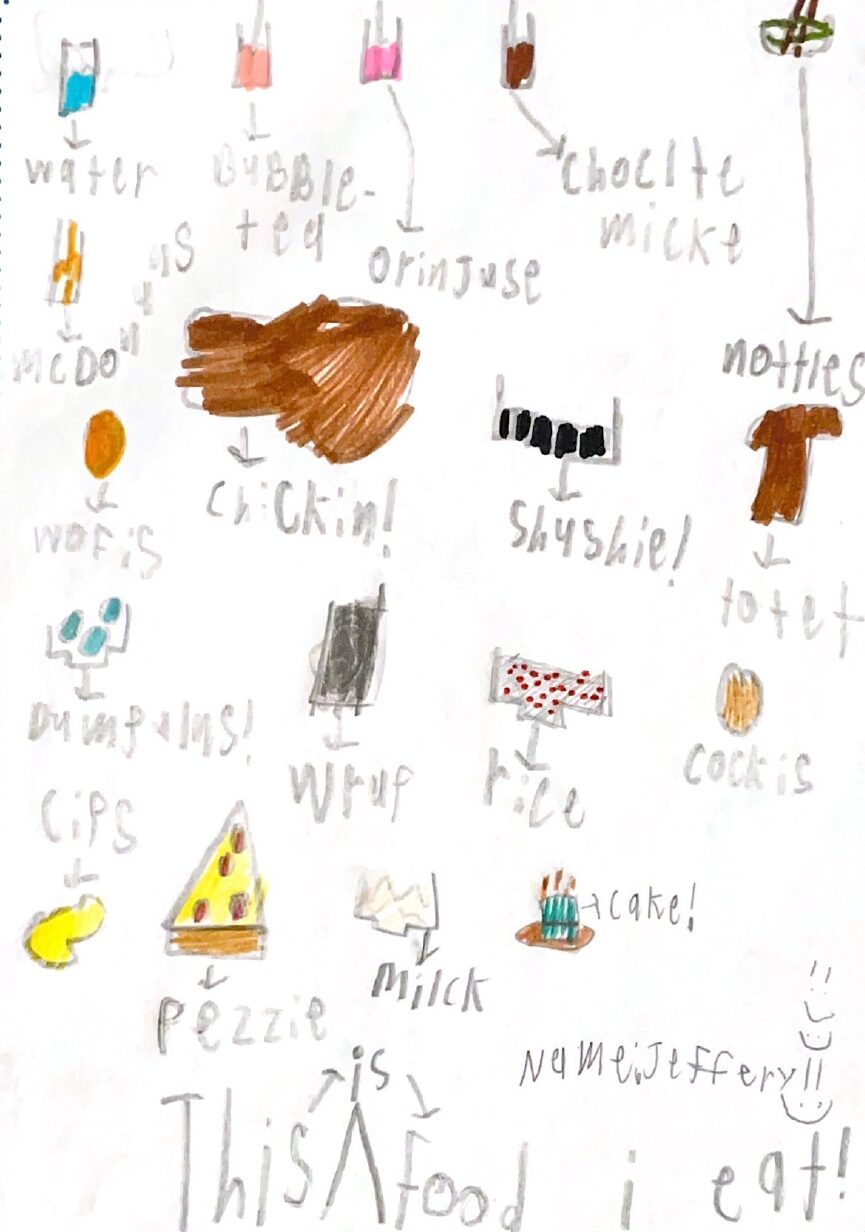 water
BUBBle-
tea
orinJuse
choclte
micke
nottles
mcDonalas
chickin!
shushie!
wafis
totet
Dumplins!
wrup
rice
cockis
cips
pezzie
milck
cake!
Name:Jeffery!!
is
This food i eat!